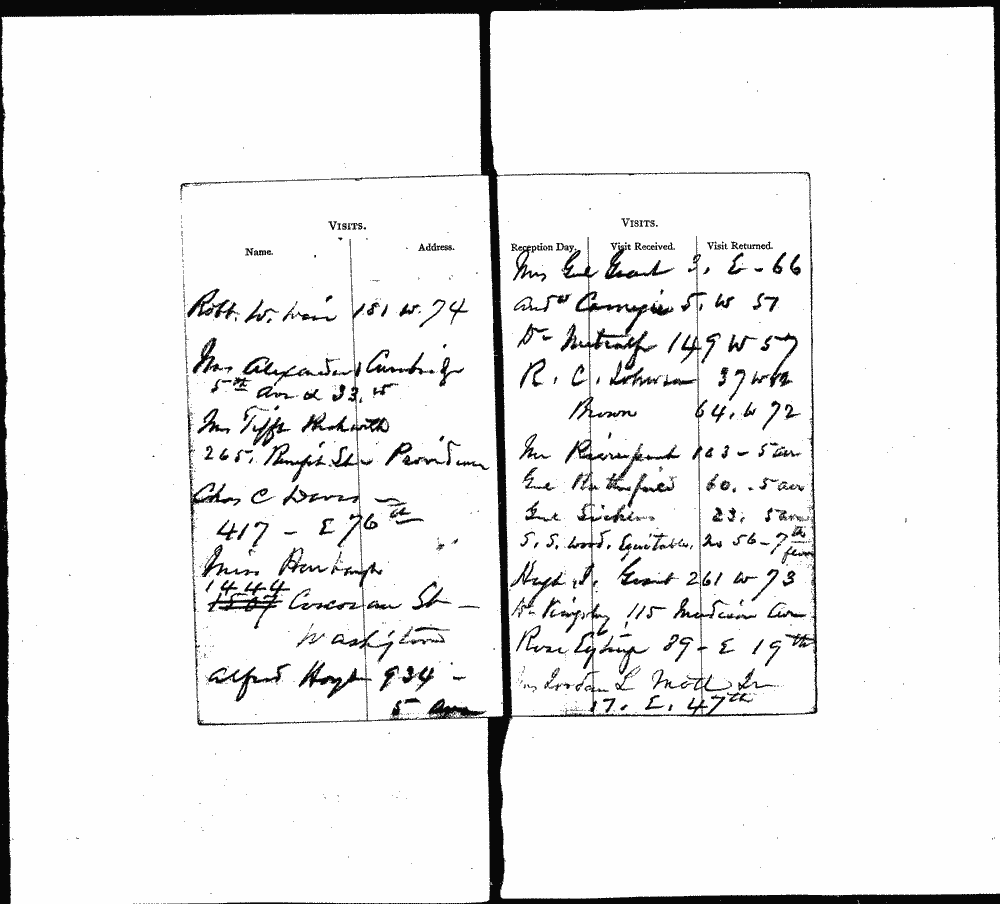 VISITS.
Name. Address.
Robt. W. Weir 151 W. 74
Mrs Alexander Cambridge
5th Ave & 33. W
Mrs Tifft
265. St Providence
Chas C Daves
417 - E 76th
Miss
1444
1507 Corcoran St -
Washington
Alfred Hoyt 934 -
5 Ave
VISITS.
Reception Day. Visit Received. Visit Returned.
Mrs Gnl Grant 3. E - 66
Andw Carnegie 5. W 51
Dr Metcalfe 149 W 57
R. C. Johnson 37 W
Brown 64. W 72
Mr Pierrepont 103 - 5 ave
Gnl Rutherford 60. - 5 ave
Gnl Sickles 23. 5 ave
S. S. Wood. Equitable. No 56 - 7th floor
Hugh J. Grant 261 W 73
Dr Kingsley 115 Madison Ave
Rose Eytinge 89 - E 19th
Mrs Jordan L Mott Jr
17. E. 47th